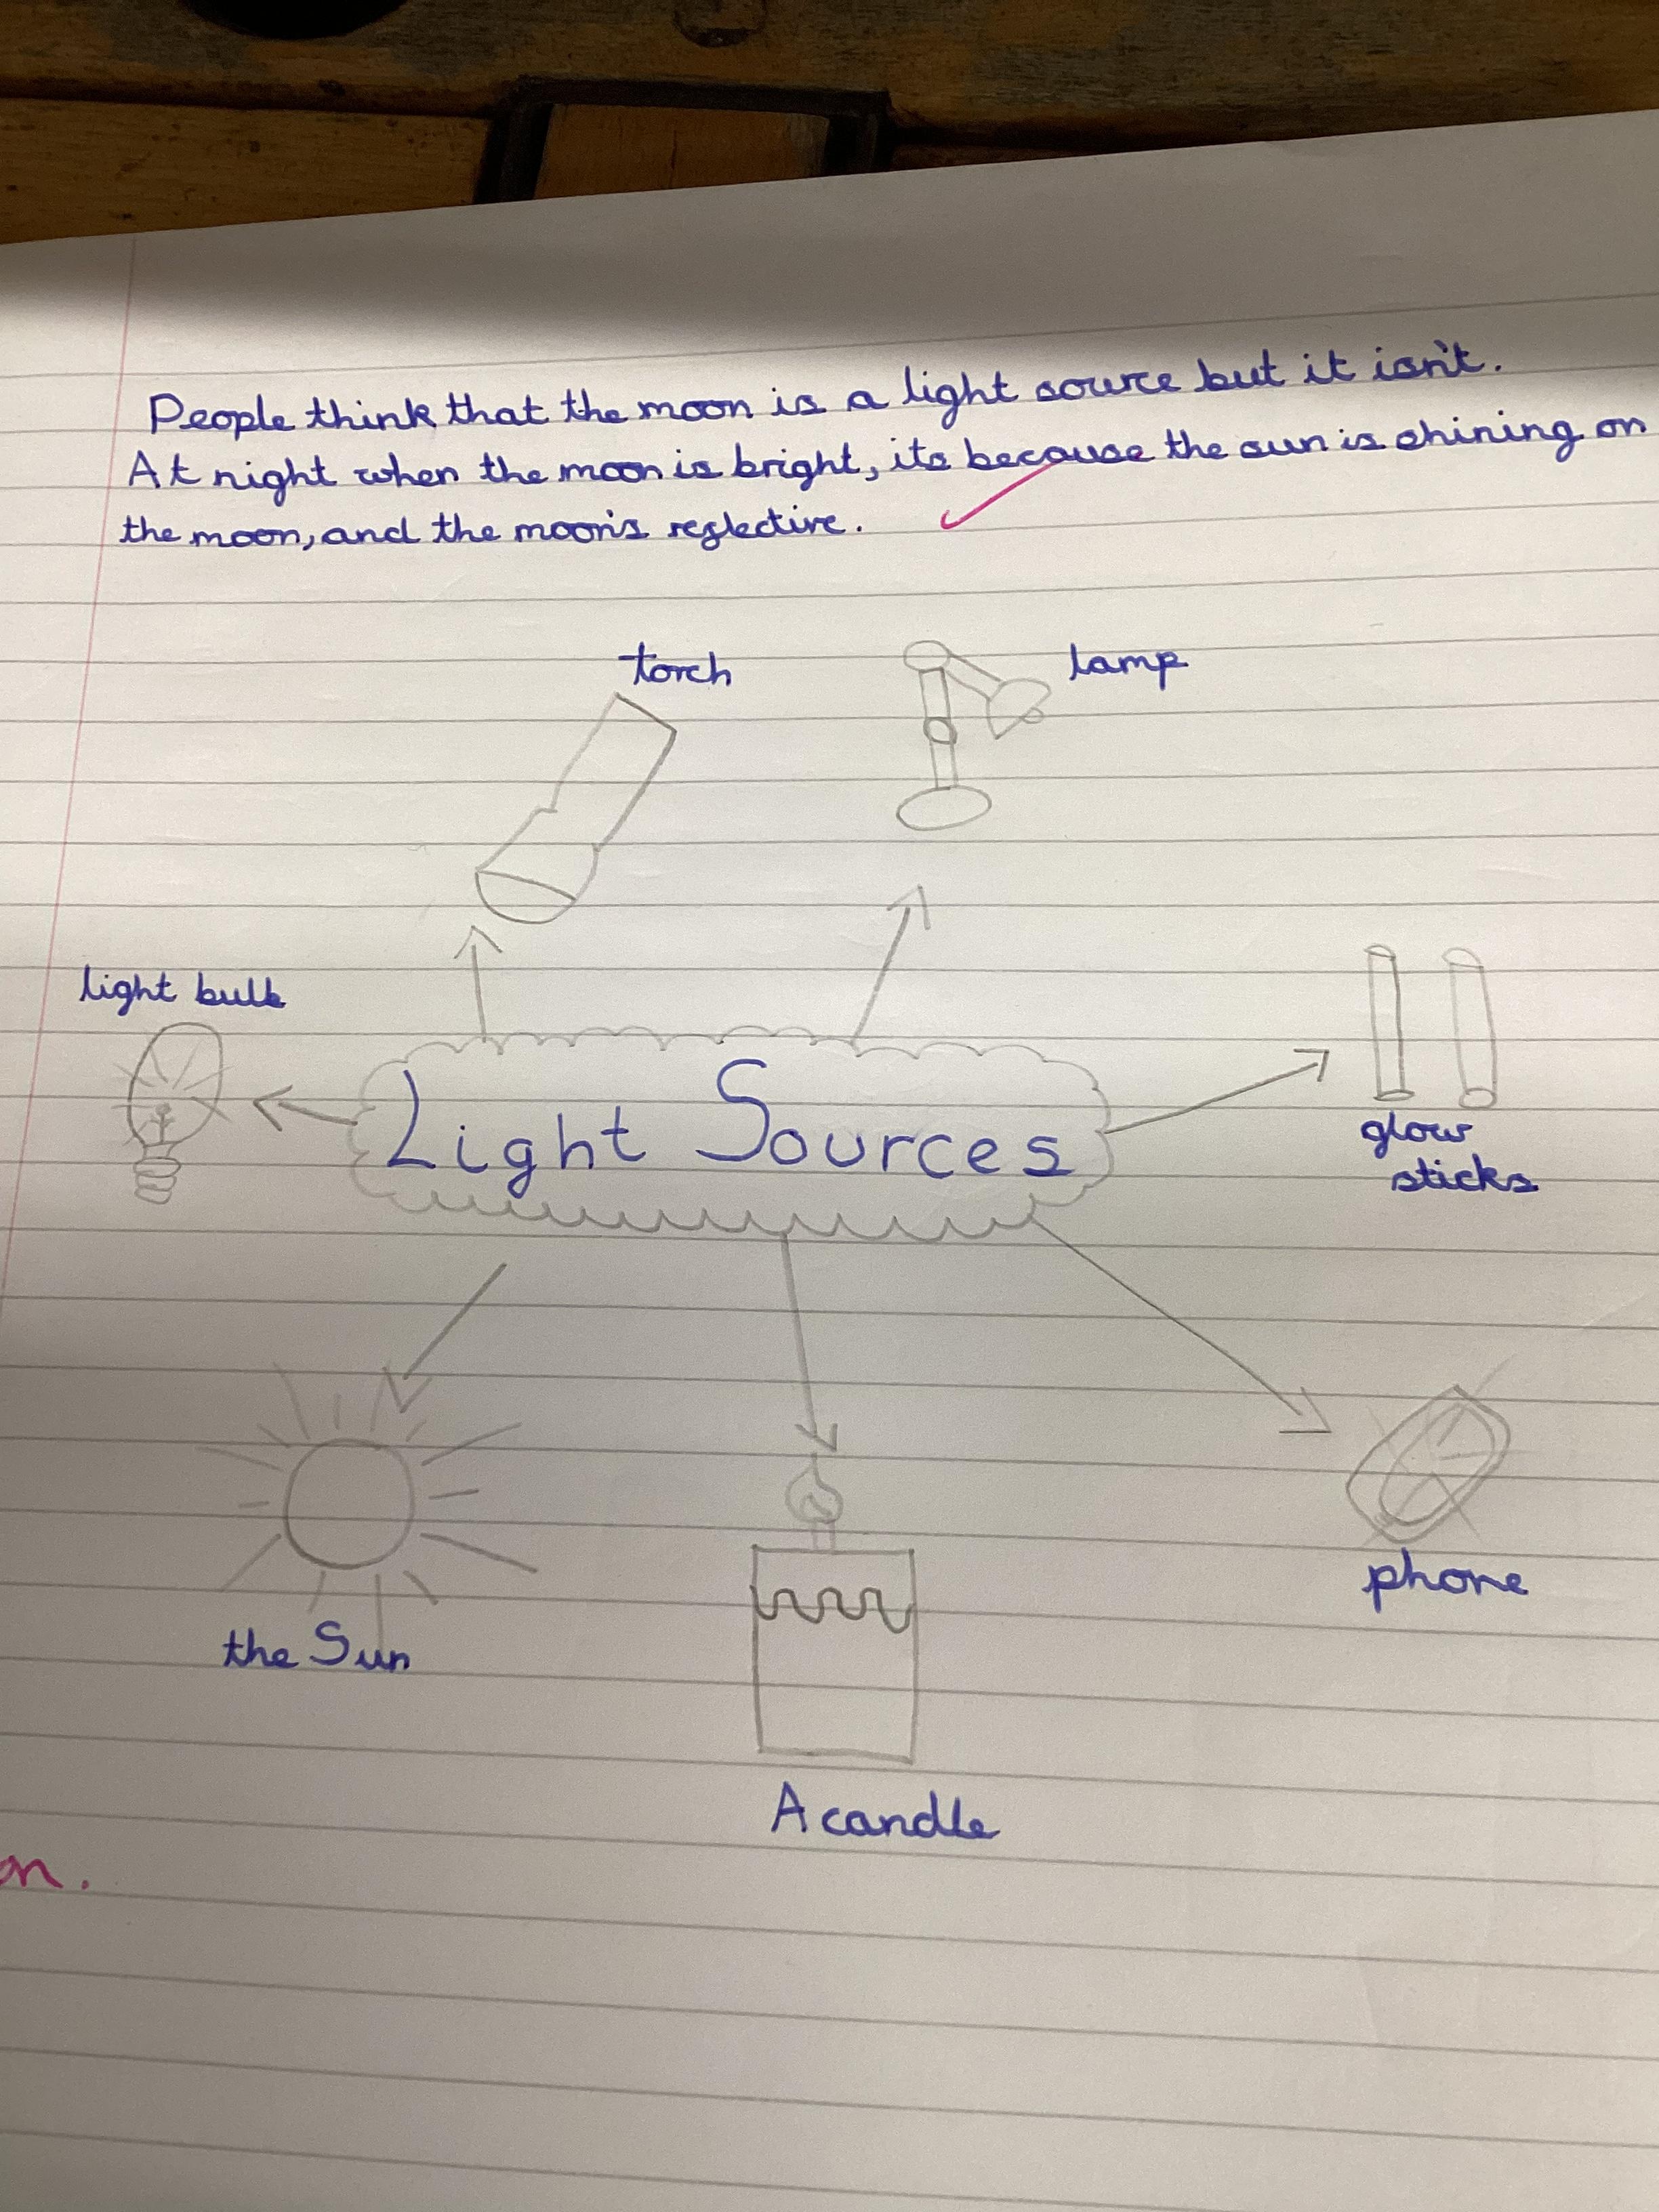 People think that the moon is a light source but it isn't.
At night when the moon is bright, its because the sun is shining on
the moon, and the moon's reglective.
torch
lamp
light bulb
glow
sticks
Light Sources
the Sun
phone
A candle
on.